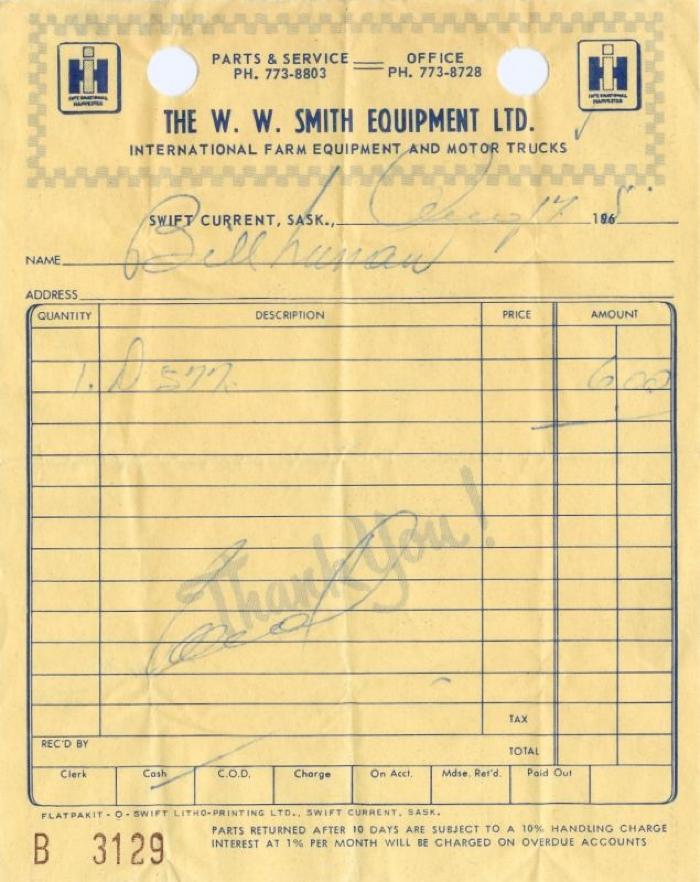 IH INTERNATIONAL HARVESTER
PARTS & SERVICE OFFICE
PH. 773-8803 PH. 773-8728
IH INTERNATIONAL HARVESTER
THE W. W. SMITH EQUIPMENT LTD.
INTERNATIONAL FARM EQUIPMENT AND MOTOR TRUCKS
SWIFT CURRENT, SASK., Aug 17 196
NAME Bill
ADDRESS
QUANTITY DESCRIPTION PRICE AMOUNT
1. D 577. 6.00
Thank You!
TAX
REC'D BY TOTAL
Clerk Cash C.O.D. Charge On Acct. Mdse. Ret'd. Paid Out
FLATPAKIT - O - SWIFT LITHO-PRINTING LTD., SWIFT CURRENT, SASK.
B 3129
PARTS RETURNED AFTER 10 DAYS ARE SUBJECT TO A 10% HANDLING CHARGE
INTEREST AT 1% PER MONTH WILL BE CHARGED ON OVERDUE ACCOUNTS